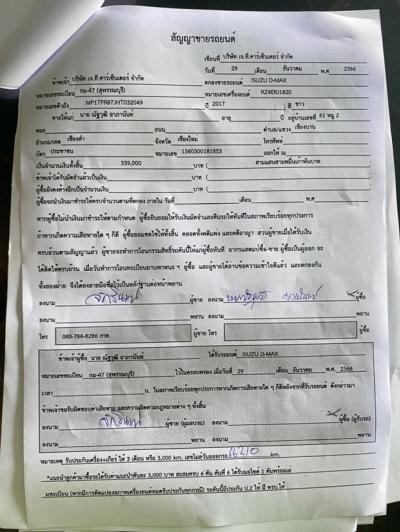 สัญญาขายรถยนต์
เขียนที่ บริษัท เจ.ที.คาร์เซ็นเตอร์ จำกัด
วันที่ 29 เดือน ธันวาคม พ.ศ 2566
ข้าพเจ้า บริษัท เจ.ที.คาร์เซ็นเตอร์ จำกัด ตกลงขายรถยนต์ ISUZU D-MAX
หมายเลขทะเบียน กม-47 (สุพรรณบุรี) หมายเลขเครื่องยนต์ RZ4EIU1820
หมายเลขตัวถัง MP1TFR87JHT032049 ปี 2017 สี ขาว
ขายให้แก่ นาย ณัฐวุฒิ อาภานันท์ อายุ ปี อยู่บ้านเลขที่ 61 หมู่ 2
ซอย ถนน ตำบล/แขวง เชียงบาน
อำเภอ/เขต เชียงคำ จังหวัด เชียงใหม โทรศัพท์
บัตร ประชาชน หมายเลข 1560300181853 ออกให้ ณ
เป็นจำนวนเงินทั้งสิ้น 339,000 บาท ( สามแสนสามหมื่นเก้าพันบาท
ข้าพเจ้าได้รับมัดจำแล้วเป็นเงิน บาท (
ผู้ซื้อยังคงค้างอีกเป็นจำนวนเงิน บาท (
ผู้ซื้อจะนำเงินมาชำระให้ครบจำนวนตามที่ตกลง ภายใน วันที่ เดือน พ.ศ
หากผู้ซื้อไม่นำเงินมาชำระให้ตามกำหนด ผู้ซื้อยินยอมให้ริบเงินมัดจำและคืนรถให้ทันทีในสภาพเรียบร้อยทุกประการ
ถ้าหากเกิดความเสียหายใด ๆ ก็ดี ผู้ซื้อยอมชดใช้ให้ทั้งสิ้น ตลอดทั้งคดีแพ่ง และคดีอาญา ส่วนผู้ขายเมื่อได้รับเงิน
ครบถ้วนตามสัญญาแล้ว ผู้ขายจะทำการโอนกรรมสิทธิ์รถคันนี้ให้แก่ผู้ซื้อทันที
ทั้งสองฝ่าย จึงได้ลงลายมือชื่อไว้เป็นหลักฐานต่อหน้าพยาน
ลงนาม ผู้ขาย ลงนาม ผู้ซื้อ
ลงนาม พยาน ลงนาม พยาน
โทร 080-784-8286 กาย ผู้ขาย โทร ผู้ซื้อ
ข้าพเจ้าผู้ซื้อ นาย ณัฐวุฒิ อาภานันท์ ได้รับรถยนต์ ISUZU D-MAX
หมายเลขทะเบียน กม-47 (สุพรรณบุรี) ไว้ในครอบครอง เมื่อวันที่ 29 เดือน ธันวาคม พ.ศ. 2566
เวลา น. ในสภาพเรียบร้อยทุกประการหากเกิดการเสียหายใด ๆ ก็ดีหลังจากที่รับรถยนต์ ดังกล่าวมา
ข้าพเจ้าขอรับผิดชอบค่าเสียหาย และความผิดตามกฎหมายต่าง ๆ ทั้งสิ้น
ลงนาม ผู้ขาย (ผู้มอบรถ) ลงนาม ผู้ซื้อ (ผู้รับรถ)
ลงนาม พยาน ลงนาม พยาน
หมายเหตุ รับประกันเครื่อง+เกียร์ ให้ 3 เดือน หรือ 3,000 km. เลขไมล์วันออกรถ km.
*แนะนำลูกค้ามาซื้อรถได้รับค่าแนะนำคันละ 3,000 บาท สะสมครบ 6 คัน คันที่ 6 ได้รับมอไซค์ 1 คันพร้อมเล่